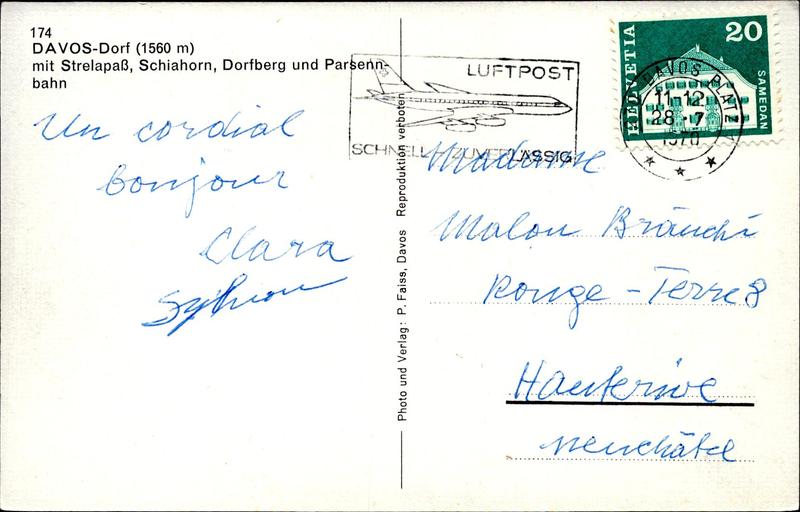 174
DAVOS-Dorf (1560 m)
mit Strelapaß, Schiahorn, Dorfberg und Parsenn-
bahn
Un cordial
bonjour
Clara
Photo und Verlag: P. Faiss, Davos Reproduktion verboten
LUFTPOST
SCHNELL ZUVERLÄSSIG
HELVETIA
20
SAMEDAN
DAVOS PLATZ
11-12
28 -7
Madame
Malou Bräuchi
Rouge-Terres
Hauterive
Neuchâtel